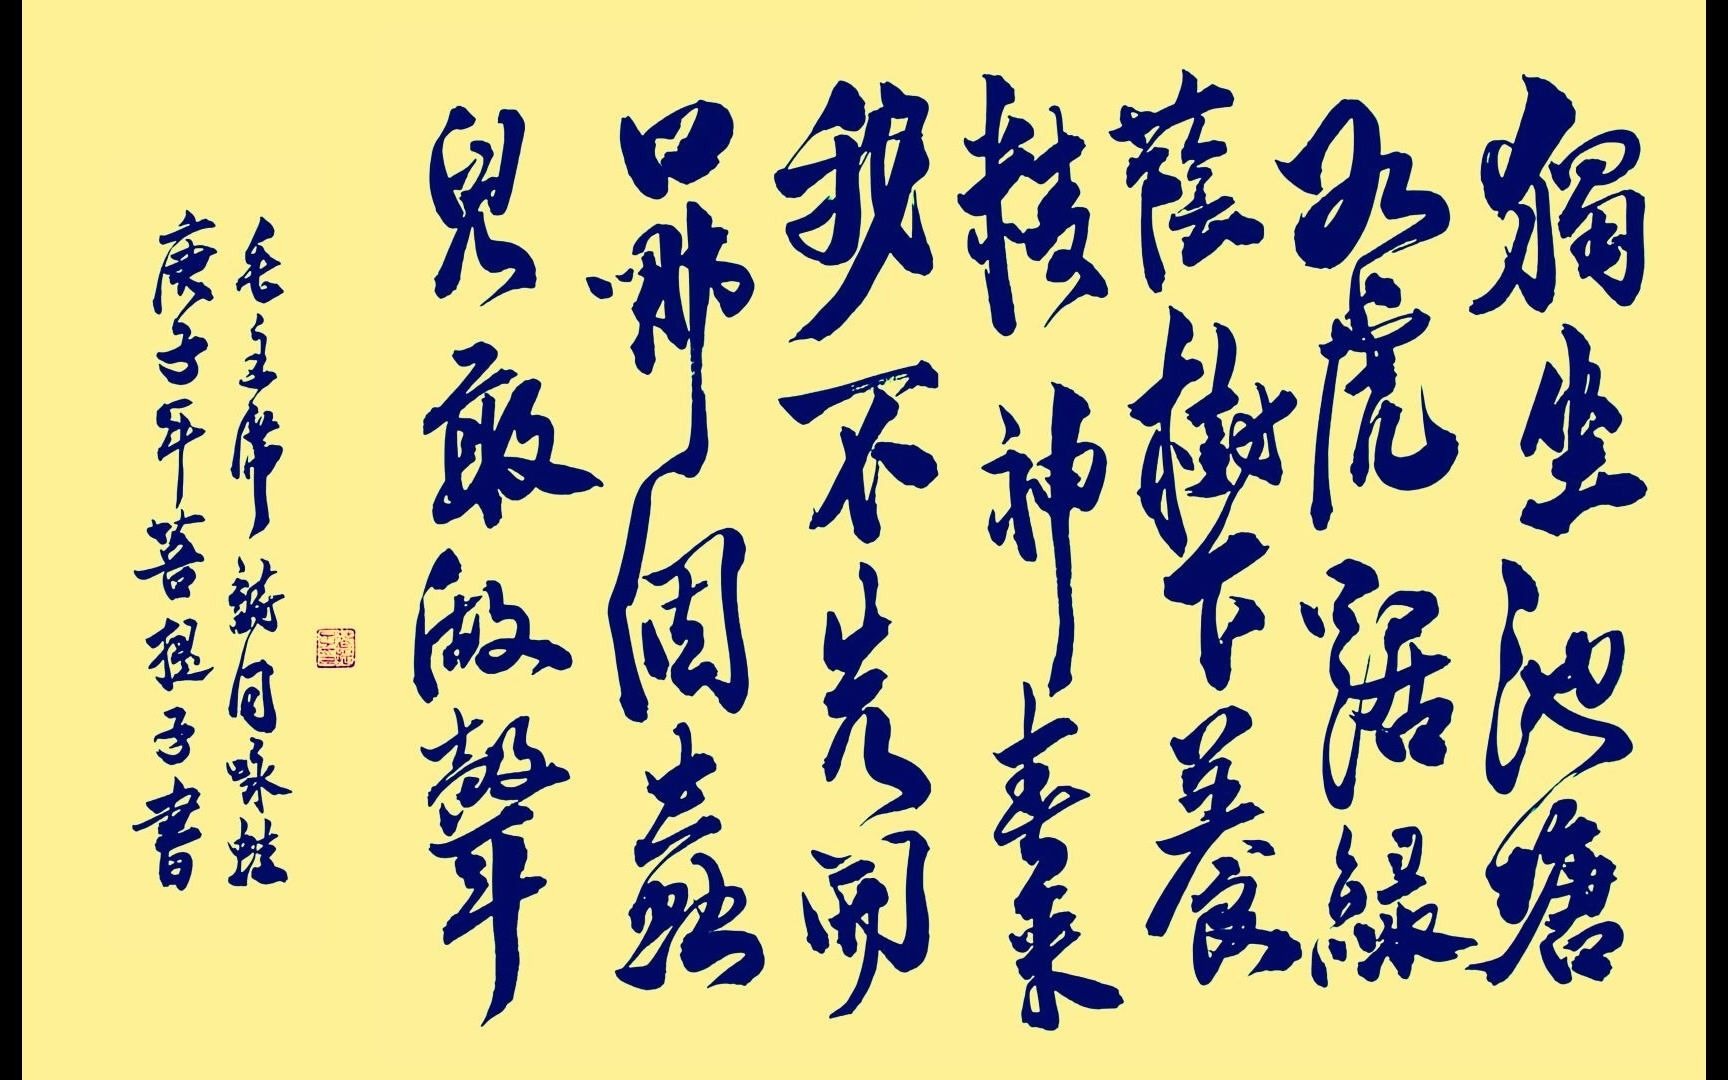 獨坐池塘
如虎踞綠
蔭樹下養
精神春來
我不先開
口哪個蟲
兒敢做聲
毛主席詩詞咏蛙
庚子年菩提子書